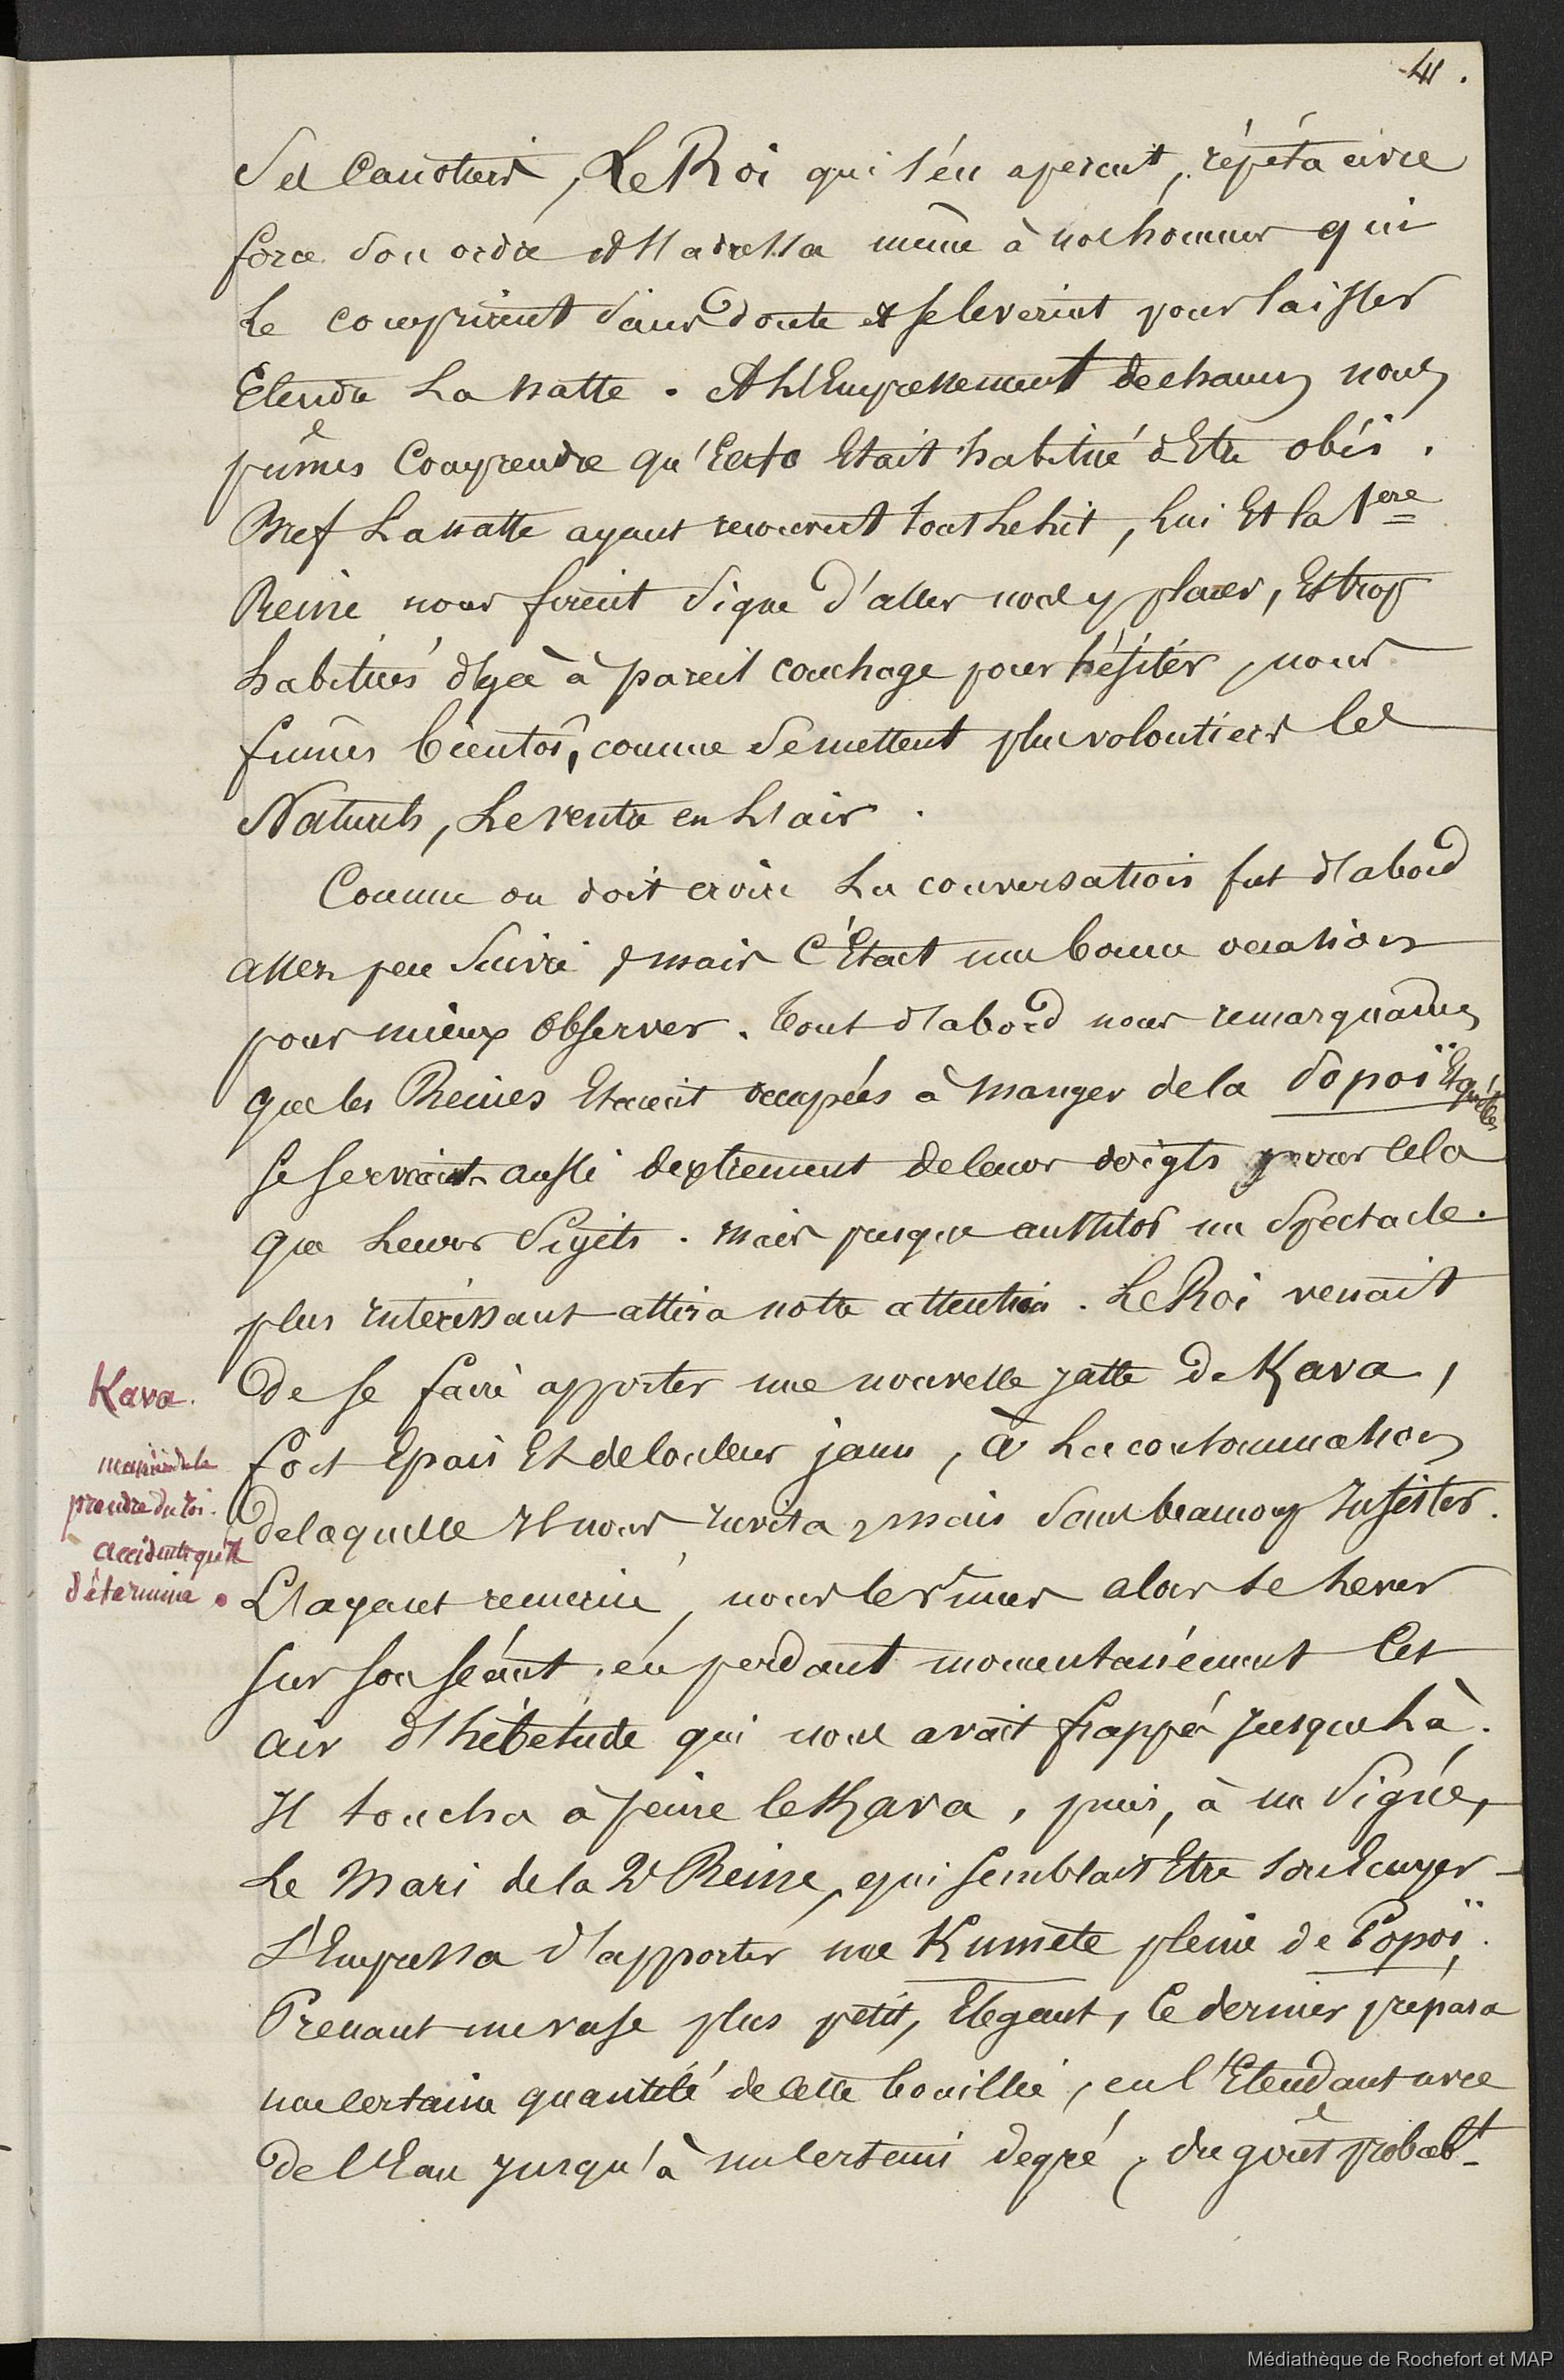 41.
des canotiers, Le Roi qui s'en apercut, répéta avec
force son ordre et s'adressa même à nos hommes qui
Le comprirent sans doute et se leverent pour laisser
Etendre La natte. A L'Empressement de chacun nous
pûmes Comprendre qu'Ecato Etait habitué d'Etre obéi.
Bref La natte ayant recouvert tout Le Lit, Lui Et la 1ere
Reine nous firent Signe d'aller nous y placer, Et trop
habitués déjà à pareil couchage pour hésiter, nous
fûmes bientôt, comme se mettent plus volontiers les
Naturels, Le ventre en L'air.
Comme on doit croire La conversation fut d'abord
assez peu Suivie, mais C'Etait une bonne occasion
pour mieux observer. Tout d'abord nous remarquâmes
que les Reines Etaient occupées à manger de la Popoï Et qu'elles
se servaient aussi dextrement de leurs doigts pour cela
que Leurs Sujets. Mais presque aussitôt un Spectacle
plus interessant attira notre attention. Le Roi venait
De se faire apporter une nouvelle jatte de Kava,
fort Epais Et de couleur jaune, à La consommation
de laquelle Il nous invita, mais sans beaucoup Insister.
L'ayant remercié, nous le vîmes alors se Lever
sur son séant, en perdant momentanément Cet
air d'hébétude qui nous avait frappé jusque Là.
Il toucha à peine le Kava, puis, à un Signe,
Le Mari de la 2e Reine, qui semblait Etre son Ecuyer
S'Empressa d'apporter une Kumete pleine de Popoï.
Prenant un vase plus petit, Elegant, Ce dernier prépara
une certaine quantité de cette bouillie, en l'Etendant avec
de l'Eau jusqu'à un certain degré, du goût probabt
Kava.
manière de le
prendre du roi.
accidents qu'il
détermine.
Médiathèque de Rochefort et MAP